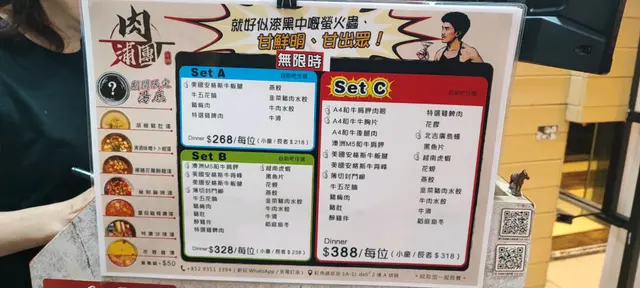 肉
蒲團
就好似漆黑中嘅螢火蟲、
甘鮮明、甘出眾!
無限時
期間限定
湯底
Set A
自助吧任食
美國安格斯牛板腱
牛五花腩
豬梅肉
特選雞髀肉
燕餃
韭菜豬肉水餃
牛肉水餃
牛滑
Dinner $268/每位(小童/長者$218)
Set B
自助吧任食
澳洲M5和牛肩胛
美國安格斯牛肩峰
美國安格斯牛板腱
薄切封門柳
牛五花腩
豬梅肉
豬肚
醉雞件
特選雞髀肉
越南虎蝦
黑魚片
花蜆
燕餃
韭菜豬肉水餃
牛肉水餃
牛滑
稻庭烏冬
Dinner
$328/每位(小童/長者$238)
Set C
自助吧任食
A4和牛肩胛肉眼
A4和牛牛胸片
A4和牛後腿肉
澳洲M5和牛肩胛
美國安格斯牛肩峰
美國安格斯牛板腱
薄切封門柳
牛五花腩
豬梅肉
豬肚
醉雞件
特選雞髀肉
花膠
北古廣島蠔
黑魚片
越南虎蝦
花蜆
燕餃
韭菜豬肉水餃
牛肉水餃
牛滑
稻庭烏冬
Dinner
$388/每位(小童/長者$318)
$50
+852 9351 3394